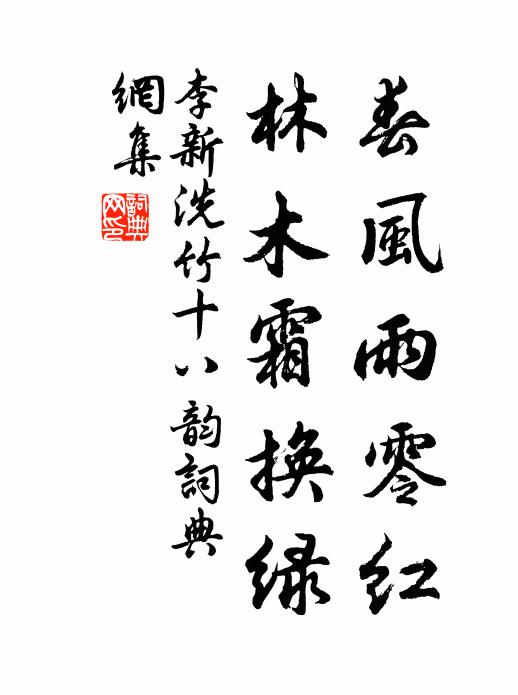 春風雨零红
林木霜換绿
李新洗竹十八韵詞典
網集
詞典网印